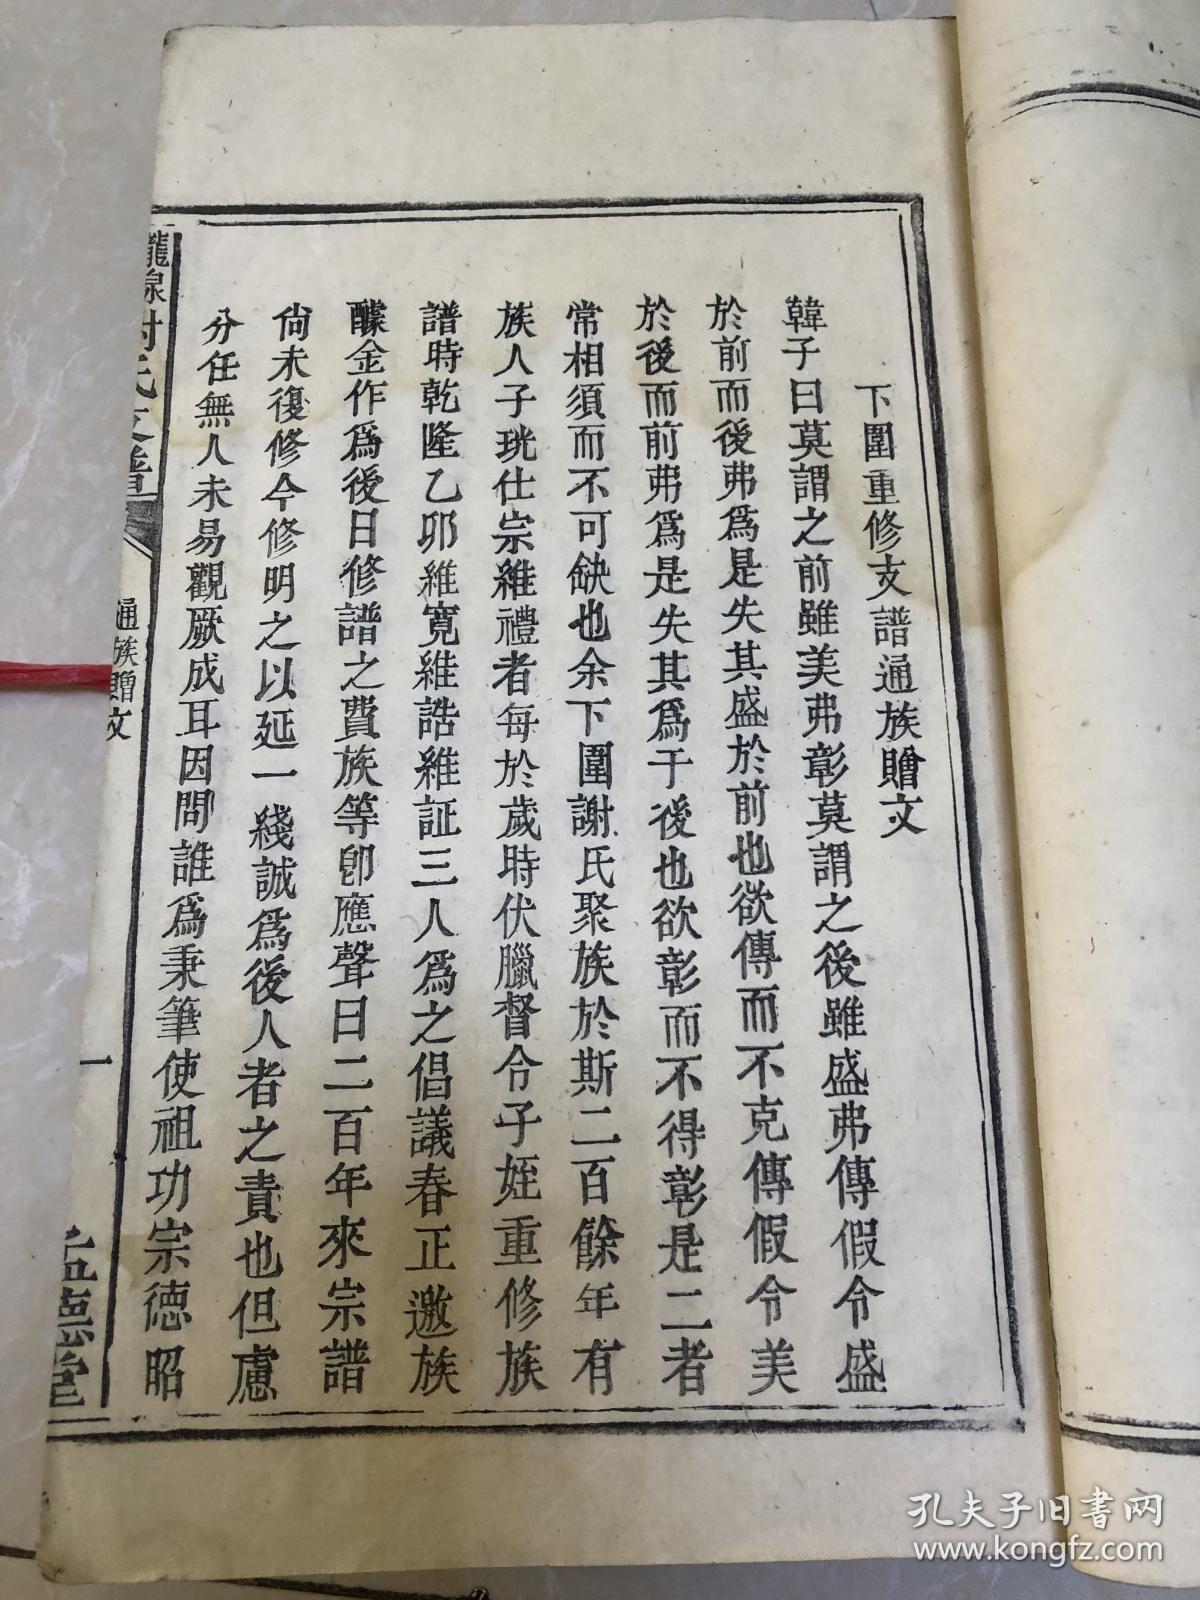 下圍重修支譜通族贈文
韓子曰莫謂之前雖美弗彰莫謂之後雖盛弗傳假令盛
於前而後弗爲是失其盛於前也欲傳而不克傳假令美
於後而前弗爲是失其爲于後也欲彰而不得彰是二者
常相須而不可缺也余下圍謝氏聚族於斯二百餘年有
族人子珖仕宗維禮者每於歲時伏臘督令子姪重修族
譜時乾隆乙卯維寬維誥維証三人爲之倡議春正邀族
醵金作爲後日修譜之費族等卽應聲曰二百年來宗譜
尙未復修今修明之以延一綫誠爲後人者之責也但慮
分任無人未易觀厥成耳因問誰爲秉筆使祖功宗德昭
通族贈文
一
孔夫子旧书网
www.kongfz.com